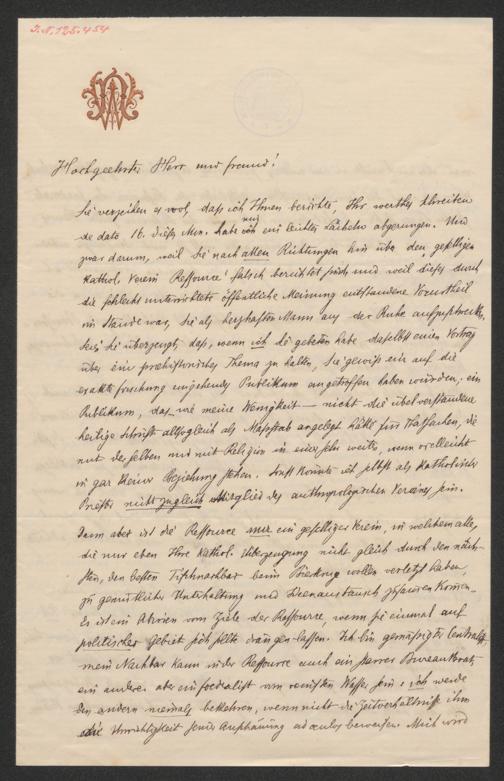 I.N. 125.454
Hochgeehrter Herr und Freund!
Sie verzeihen es wol, daß ich Ihnen berichte, Ihr werthes Schreiben
de dato 16. dieses Mon. habe mir ein leichtes Lächeln abgerungen. Und
zwar darum, weil Sie nach allen Richtungen hin über den geselligen
kathol. Verein Ressource falsch berichtet sind und weil dieses durch
die schlecht unterrichtete öffentliche Meinung entstandene Vorurtheil
im Stande war, Sie als herzhaften Mann aus der Ruhe
Sie überzeugt, daß, wenn ich Sie gebeten habe daselbst einen Vortrag
über ein praehistorisches Thema zu halten, Sie gewiß ein auf die
exakte Forschung eingehendes Publikum angetroffen haben würden, ein
Publikum, das wie meine Wenigkeit — nicht die übelverstandene
heilige Schrift allsogleich als Maßstab angelegt hätte für Thatsachen, die
mit derselben und mit Religion in einer sehr weiten, wenn vielleicht
in gar keiner Beziehung stehen. Sonst könnte ich selbst als katholischer
Priester nicht zugleich Mitglied des anthropologischen Vereines sein.
Dann aber ist die Ressource nur ein geselliger Verein, in welchem alle,
die nur eben Ihre kathol. Überzeugung nicht gleich durch den näch-
sten, den besten Tischnachbar beim wollen verletzt haben,
zu gemütlicher Unterhaltung und Ideenaustausch zusammen kom̅en.
Es ist ein vom Ziele der Ressource, wenn sie einmal auf
politisches Gebiet sich sollte drängen lassen. Ich bin gemäßigter
mein Nachbar kann in der Ressource auch ein starrer Bureaukrat,
ein anderer aber ein Foederalist vom reinsten Wasser sein, ich werde
den andern niemals bekehren, wenn nicht die Zeitverhältnisse ihm
die Unrichtigkeit seiner Anschauung ad oculos beweisen. Mich wird